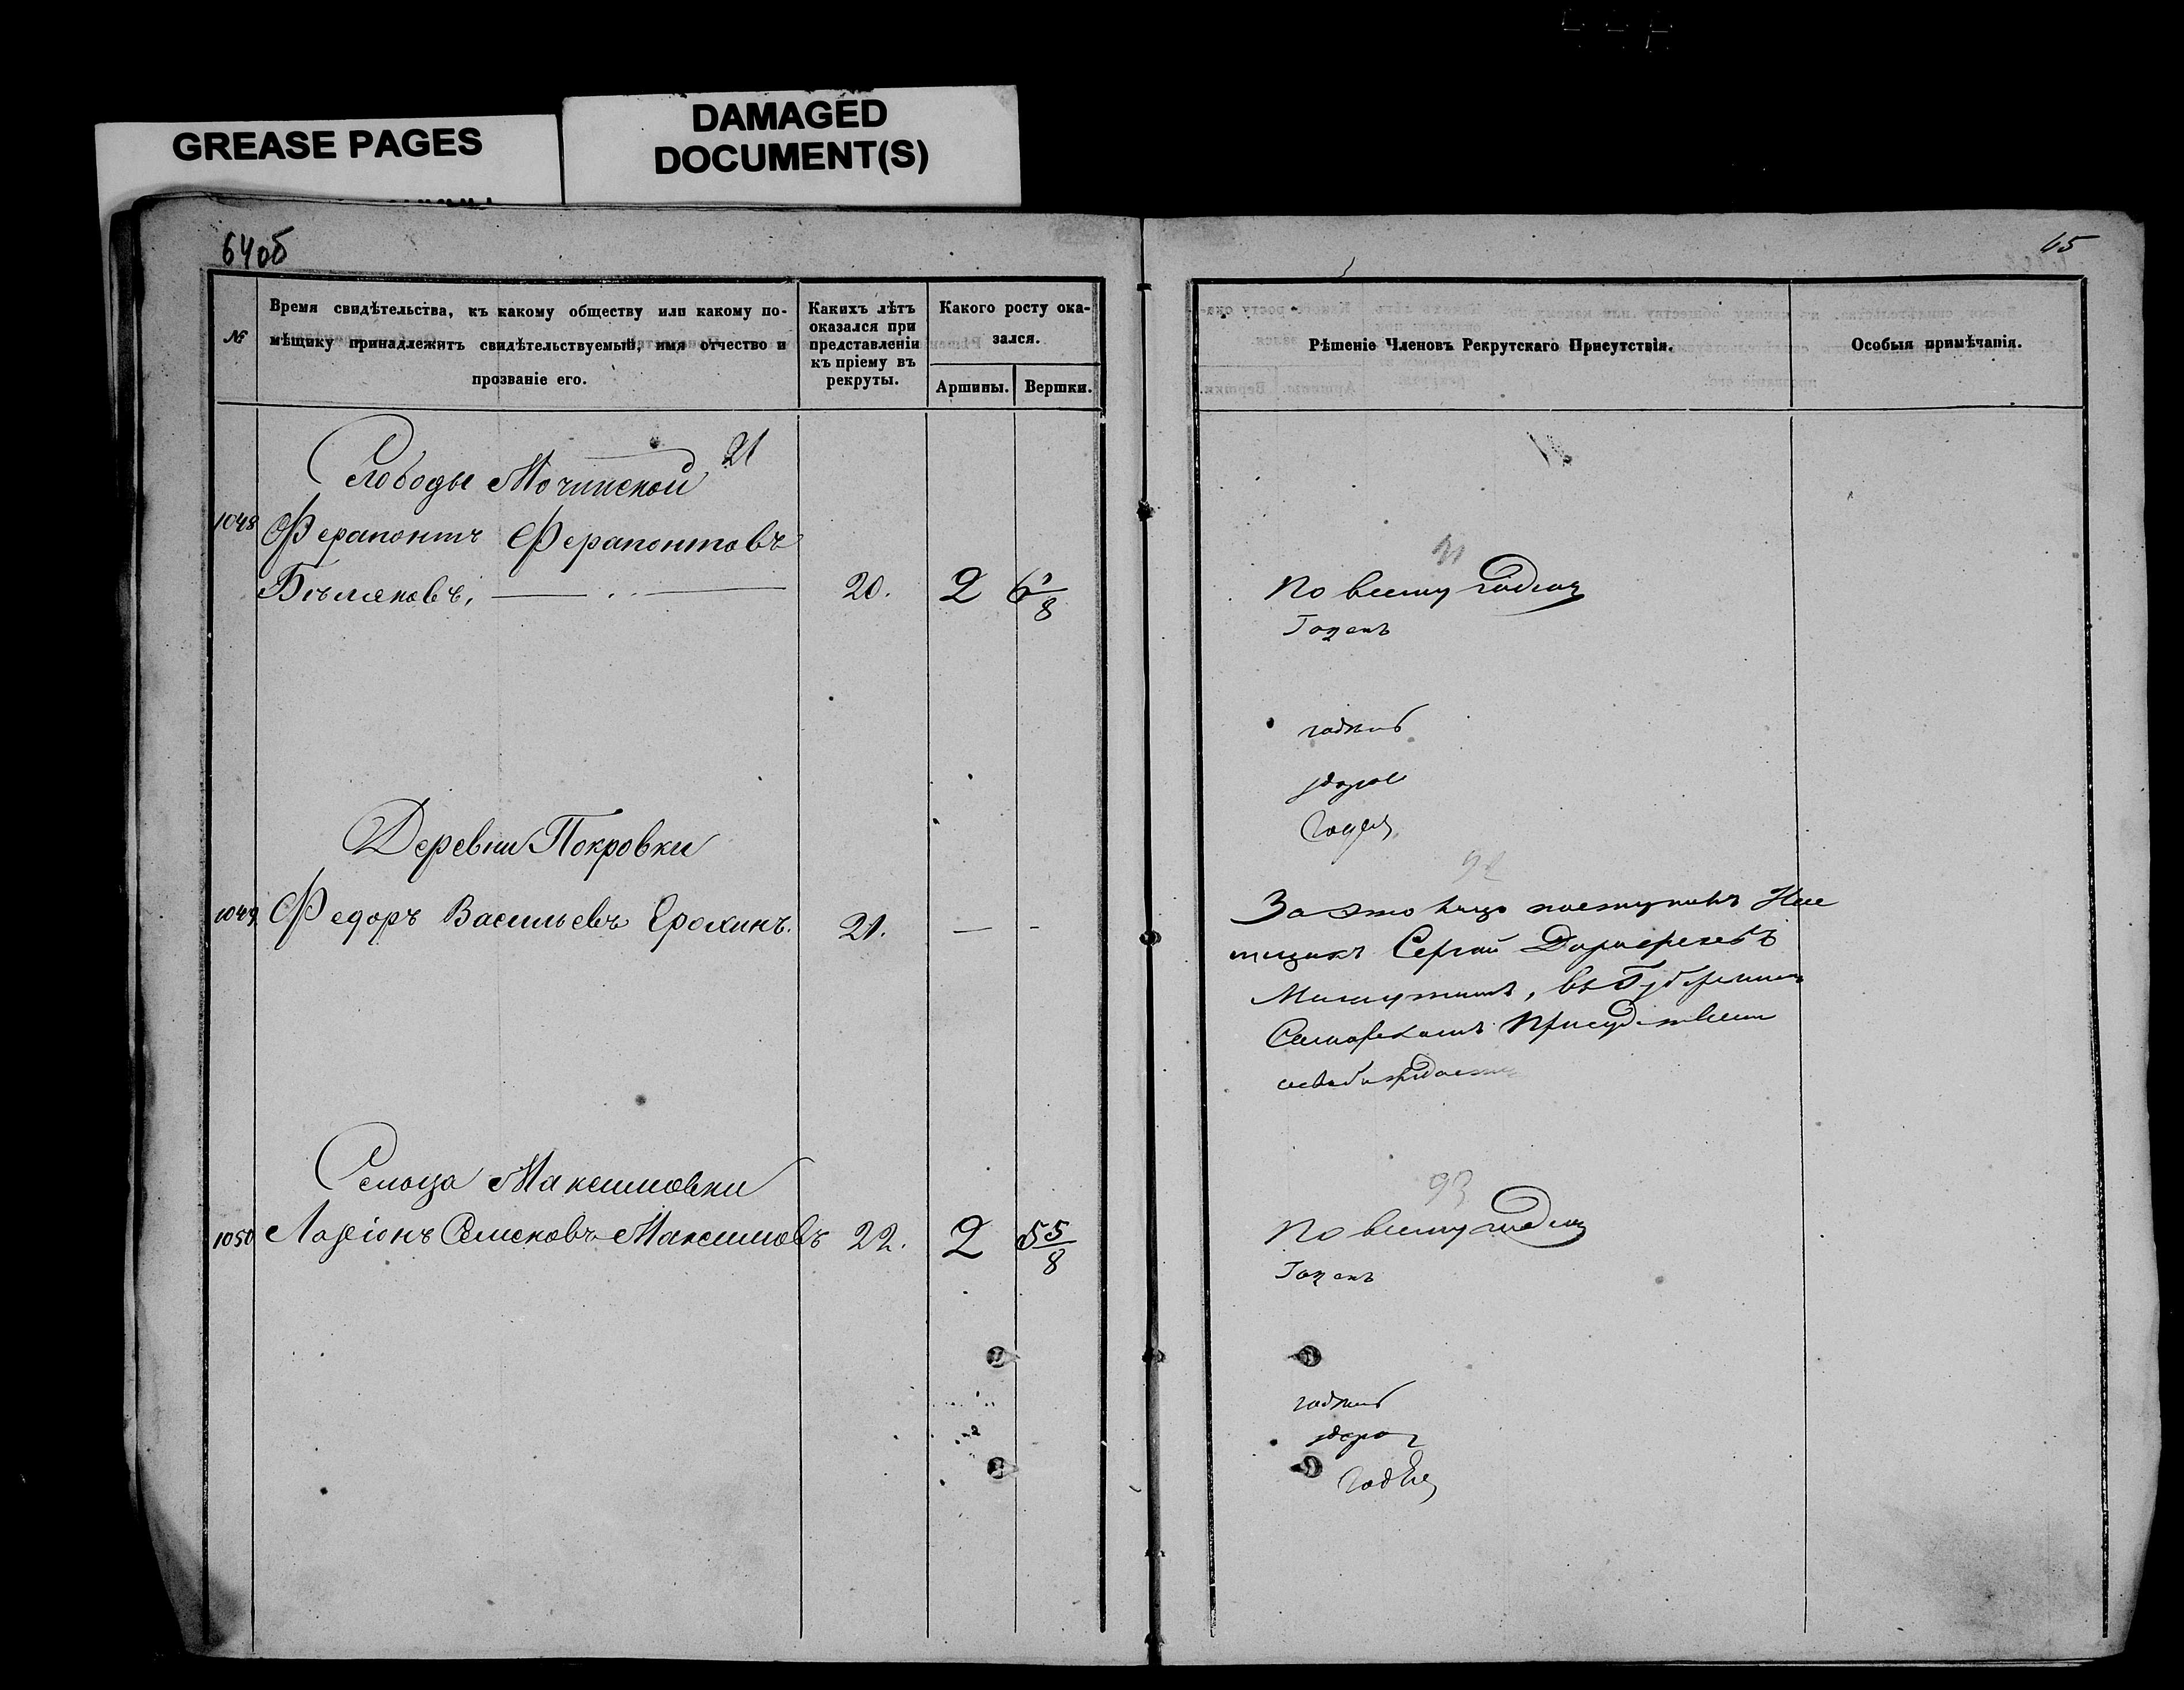 GREASE PAGES
DAMAGED
DOCUMENT(S)
64об
65
№
Время свидѣтельства, къ какому обществу или какому по-
мѣщику принадлежитъ свидѣтельствуемый, имя отчество и
прозваніе его.
Какихъ лѣтъ
оказался при
представленіи
къ пріему въ
рекруты.
Какого росту ока-
зался.
Аршины.
Вершки.
Рѣшеніе Членовъ Рекрутскаго Присутствія.
Особыя примѣчанія.
21
Слободы Мочинской
1048 Ферапонтъ Ферапонтовъ
20. 2 6 1/8
По всему годенъ
Годенъ
годенъ
здоров
Годенъ
Деревни Покровки
92
1049 Федоръ Васильевъ Ерохинъ. 21. — -
За это лицо поступилъ
Сергей
въ Губернскомъ
Самарскомъ Присудствіи
Сельца Максимовки
93
1050 Ларіонъ Семеновъ Максимовъ 22. 2 5 5/8
По всему годенъ
Годенъ
годенъ
здоров
Годенъ